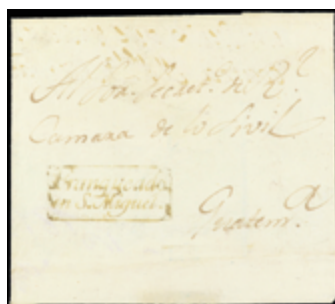 Al Sor. Secret.o de la 2.a
Camara de lo Sivil
Franqueado
en S. Miguel.
Guatem.a